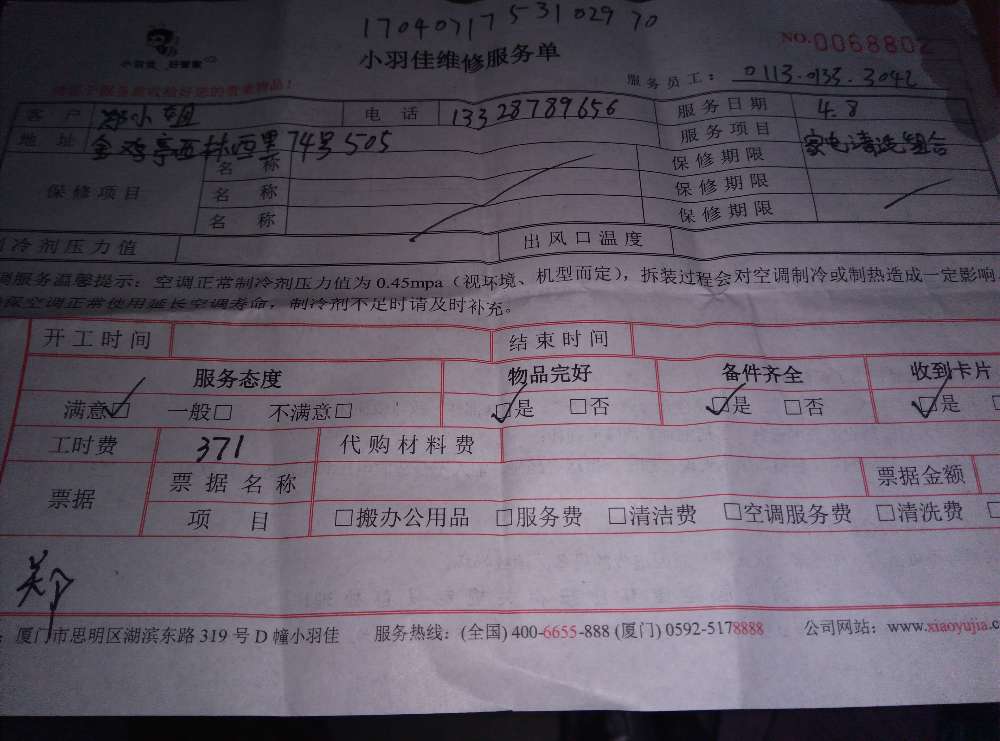 17040717531029 70
小羽佳 好管家
小羽佳维修服务单
NO.0068802
服务员工：0113.0133.3042
客户 郑小姐 电话 13328789656 服务日期 4.8
地址 金鸡亭西林西里74号505 服务项目 家电清洗组合
保修项目 名称 保修期限
名称 保修期限
名称 保修期限
冷剂压力值 出风口温度
调服务温馨提示：空调正常制冷剂压力值为0.45mpa（视环境、机型而定），拆装过程会对空调制冷或制热造成一定影响
保空调正常使用延长空调寿命，制冷剂不足时请及时补充。
开工时间 结束时间
服务态度 物品完好 备件齐全 收到卡片
满意☑ 一般□ 不满意□ ☑是 □否 ☑是 □否 ☑是 □
工时费 371 代购材料费
票据 票据名称 票据金额
项目 □搬办公用品 □服务费 □清洁费 □空调服务费 □清洗费 □
郑
：厦门市思明区湖滨东路319号D幢小羽佳 服务热线：(全国) 400-6655-888 (厦门) 0592-5178888 公司网站：www.xiaoyujia.c